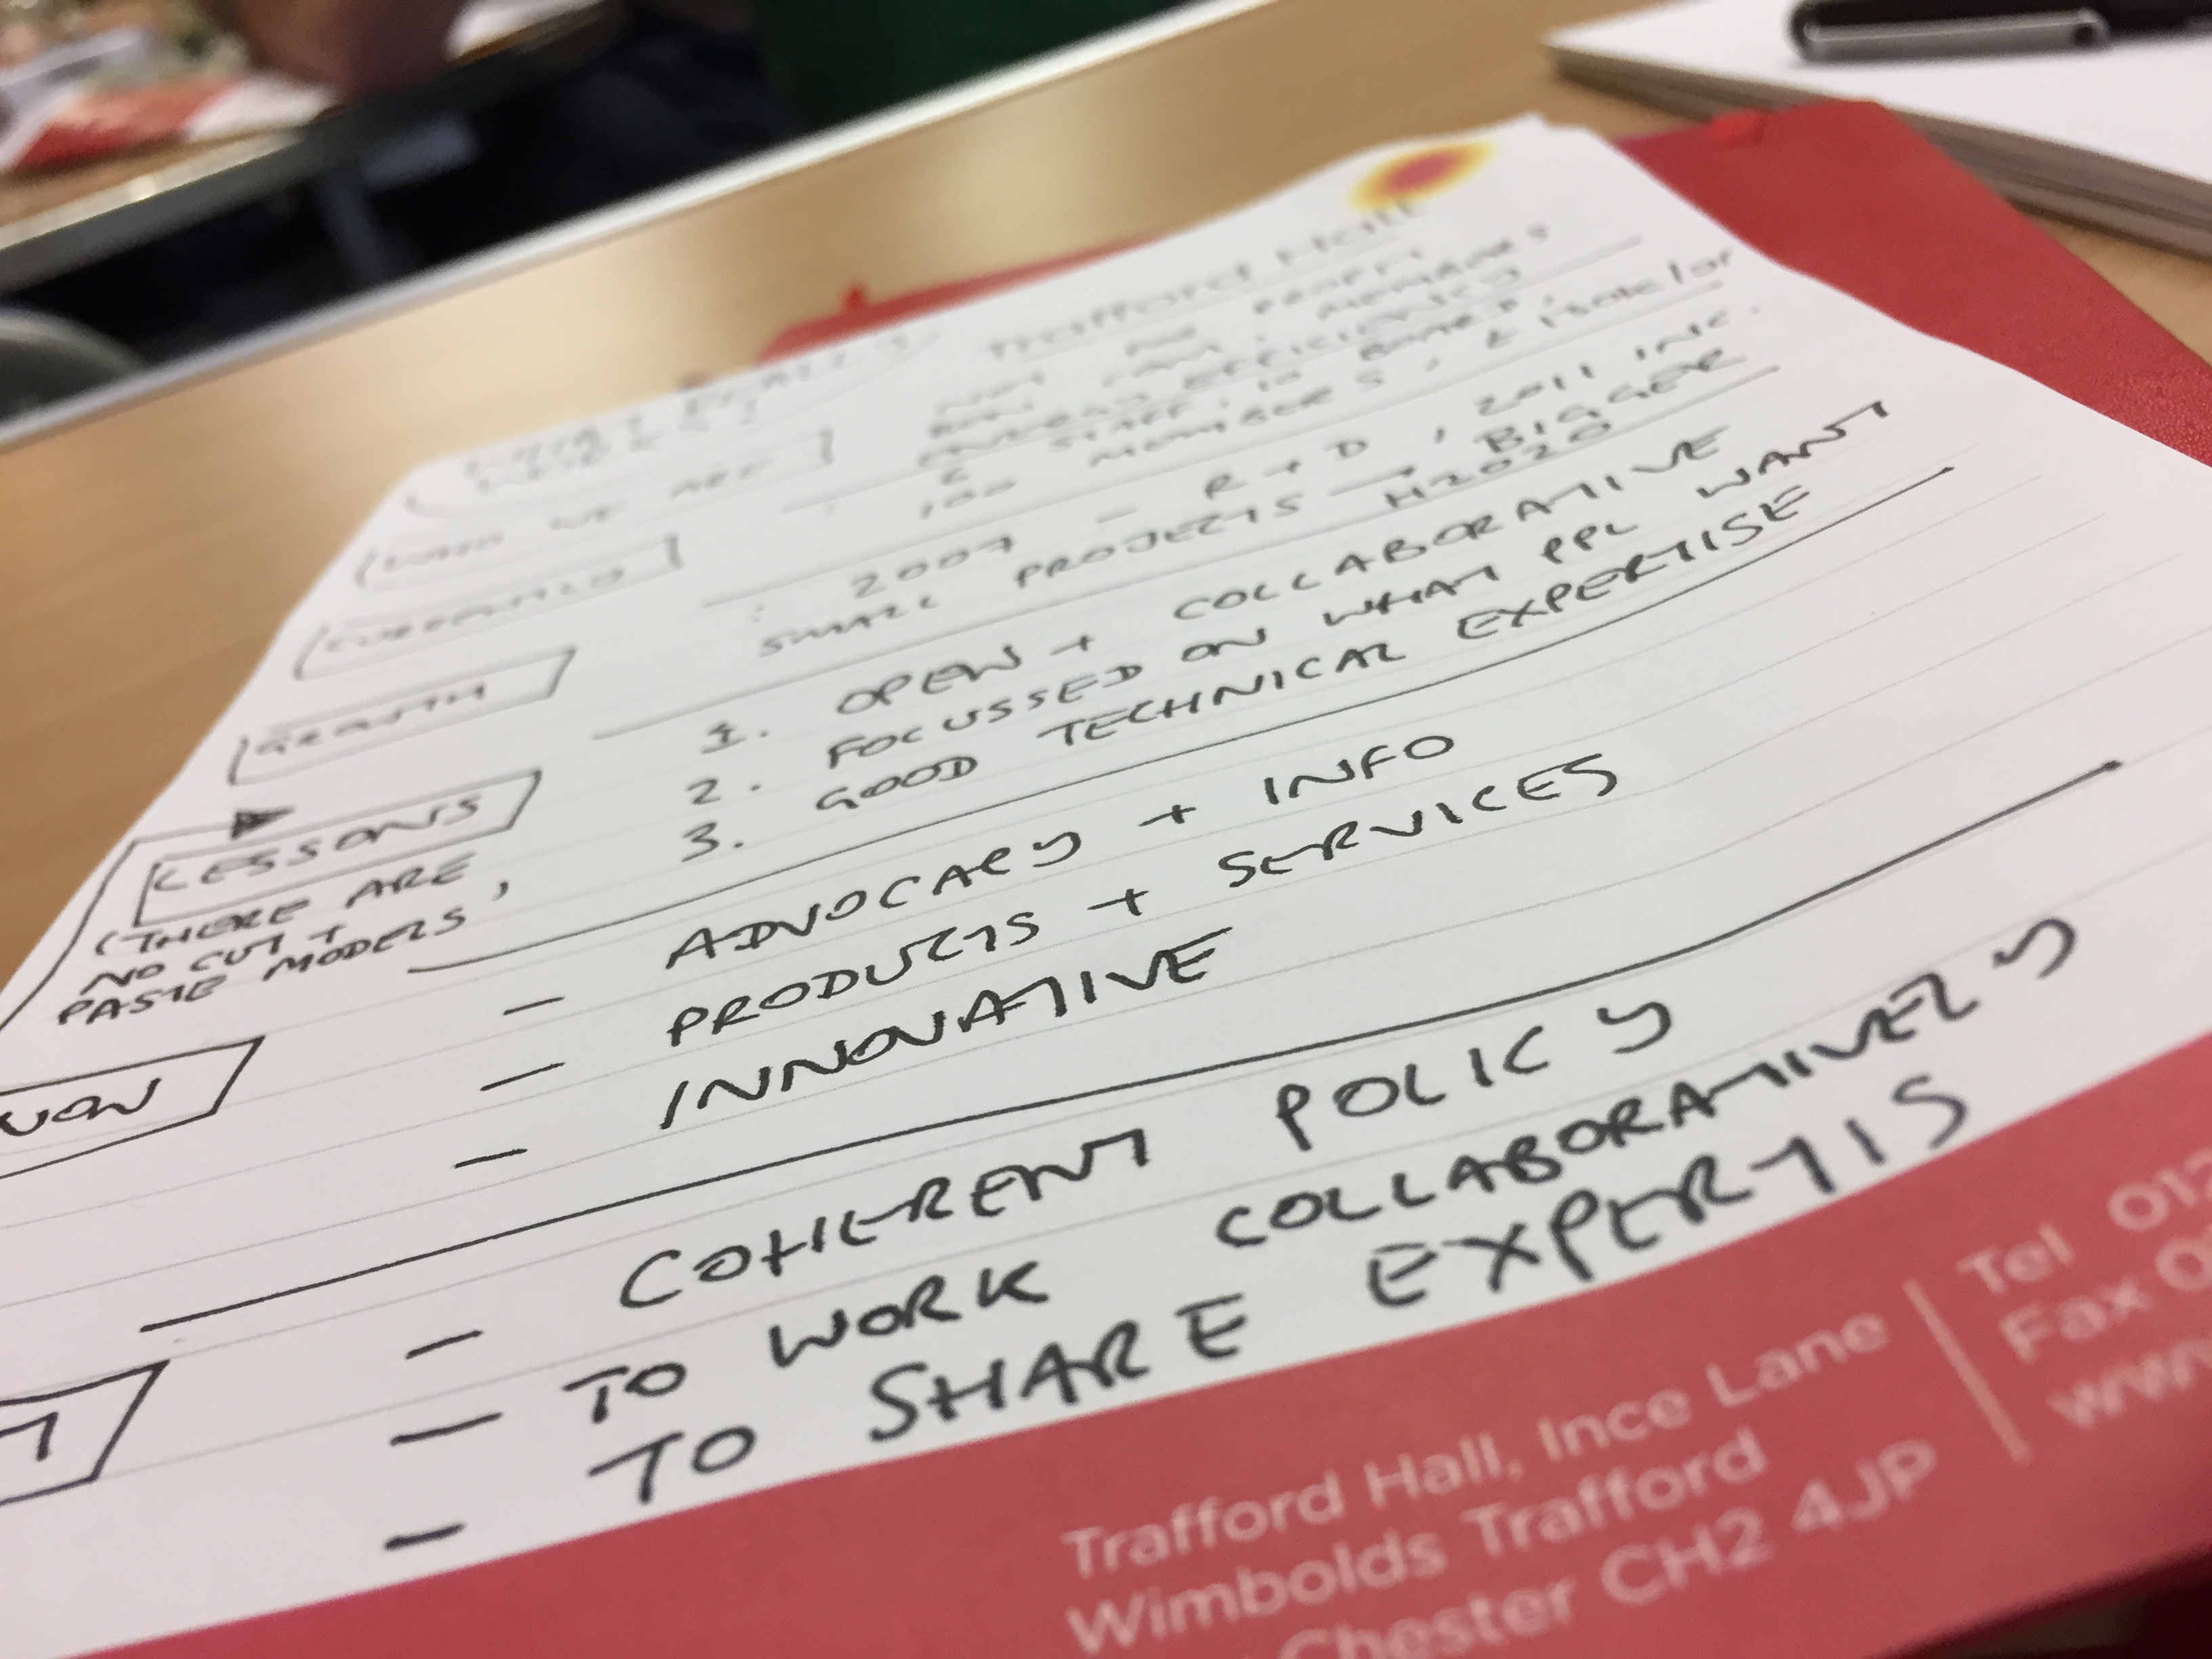 Trafford Hall
WHO WE ARE
ENERGY EFFICIENCY
STAFF, 10 BOARD,
100 MEMBERS,
CURRENTLY
: 2007 - R+D, 2011 INC.
SMALL PROJECTS → BIGGER
H2020
GROWTH
1. OPEN + COLLABORATIVE
2. FOCUSSED ON WHAT PPL WANT
3. GOOD TECHNICAL EXPERTISE
LESSONS
(THERE ARE
NO CUT +
PASTE MODELS,
- ADVOCACY + INFO
- PRODUCTS + SERVICES
- INNOVATIVE
- COHERENT POLICY
- TO WORK COLLABORATIVELY
- TO SHARE EXPERTIS
Trafford Hall, Ince Lane
Wimbolds Trafford
Chester CH2 4JP
Tel 012
Fax 0
www